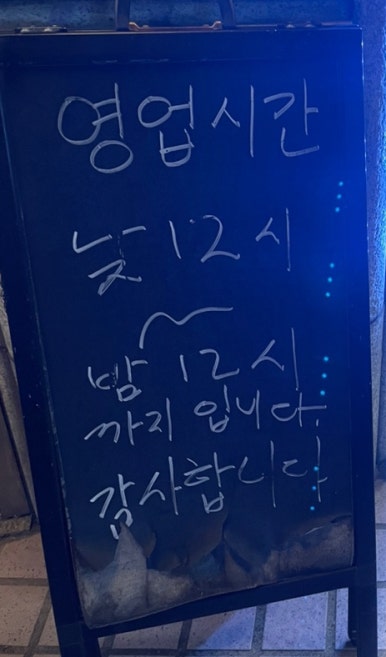 영업시간
낮 12시
~
밤 12시
까지 입니다.
감사합니다